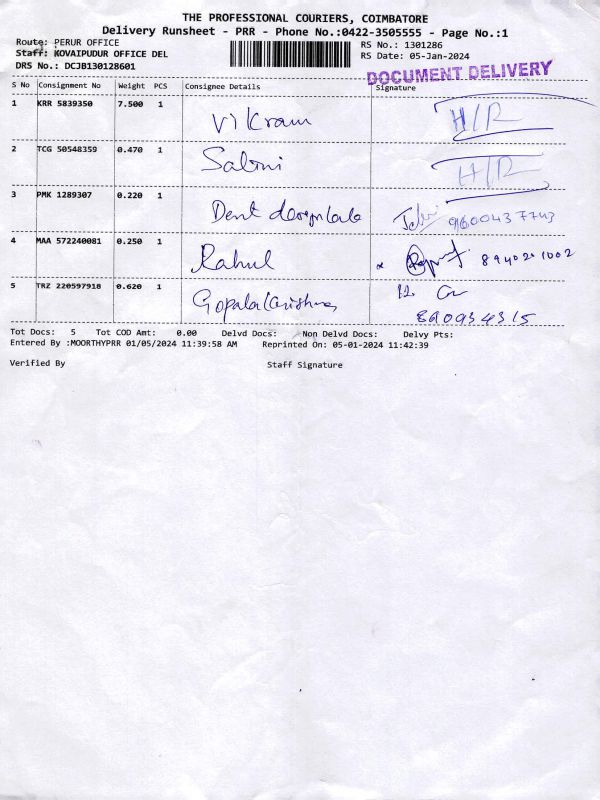 THE PROFESSIONAL COURIERS, COIMBATORE
Delivery Runsheet - PRR - Phone No.:0422-3505555 - Page No.:1
Route: PERUR OFFICE RS No.: 1301286
Staff: KOVAIPUDUR OFFICE DEL RS Date: 05-Jan-2024
DRS No.: DCJB130128601
DOCUMENT DELIVERY
S No Consignment No Weight PCS Consignee Details Signature
1 KRR 5839350 7.500 1 Vikram H/R
2 TCG 50548359 0.470 1 H/R
3 PMK 1289307 0.220 1 Dent 9600437743
4 MAA 572240081 0.250 1 Rahul 8940201002
5 TRZ 220597918 0.620 1 Gopalakrishna
Tot Docs: 5 Tot COD Amt: 0.00 Delvd Docs: Non Delvd Docs: Delvy Pts:
Entered By :MOORTHYPRR 01/05/2024 11:39:58 AM Reprinted On: 05-01-2024 11:42:39
Verified By Staff Signature